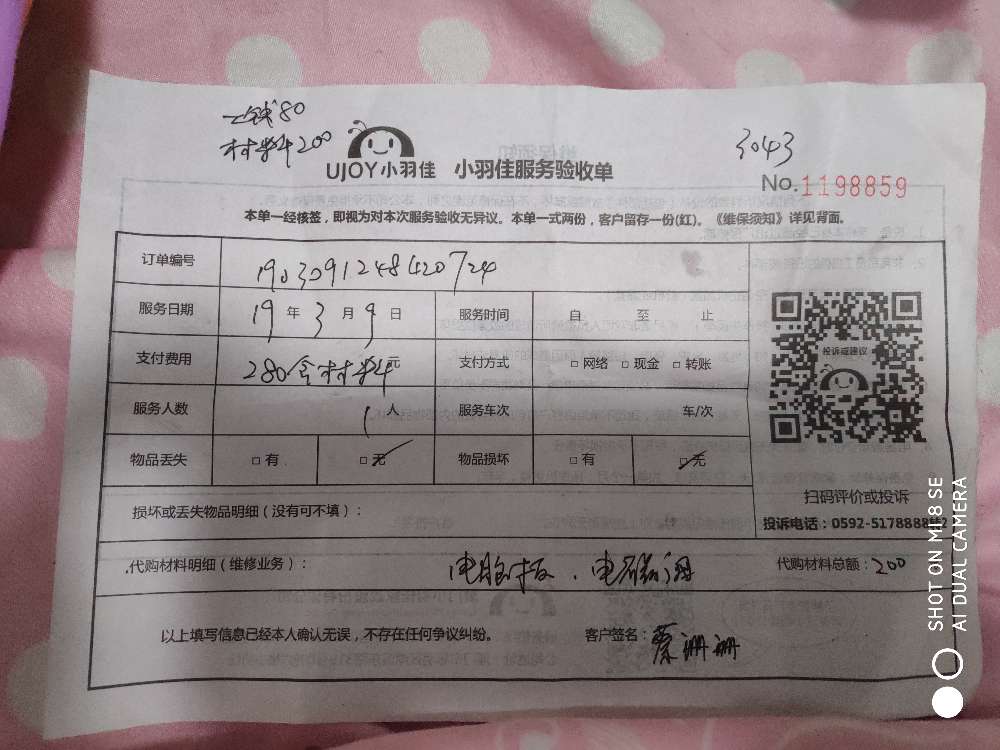 上线80
材料200
3043
UJOY小羽佳 小羽佳服务验收单
No.1198859
本单一经核签，即视为对本次服务验收无异议。本单一式两份，客户留存一份(红)。《维保须知》详见背面。
订单编号 1903091248420724
服务日期 19 年 3 月 9 日 服务时间 自 至 止
支付费用 280含材料元 支付方式 □ 网络 □ 现金 □ 转账
投诉或建议
服务人数 1 人 服务车次 车/次
物品丢失 □ 有 □ 无 物品损坏 □ 有 □ 无
扫码评价或投诉
损坏或丢失物品明细（没有可不填）：
投诉电话：0592-5178888转2
代购材料明细（维修业务）： 电脑板、电磁阀 代购材料总额：200
以上填写信息已经本人确认无误，不存在任何争议纠纷。 客户签名：蔡珊珊
SHOT ON MI 8 SE
AI DUAL CAMERA